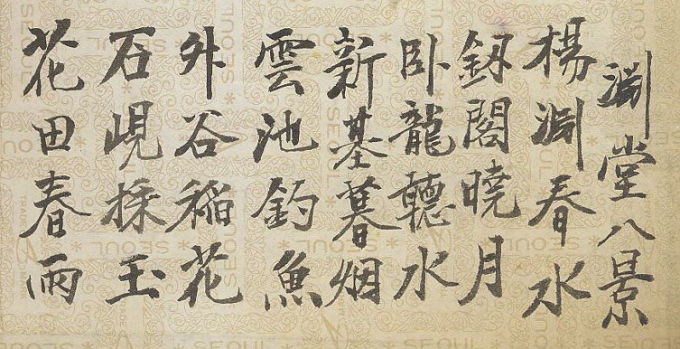 淵堂八景
楊淵春水
釼閣曉月
卧龍聽水
新基暮烟
雲池釣魚
外谷稲花
石峴採玉
花田春雨
SEOUL